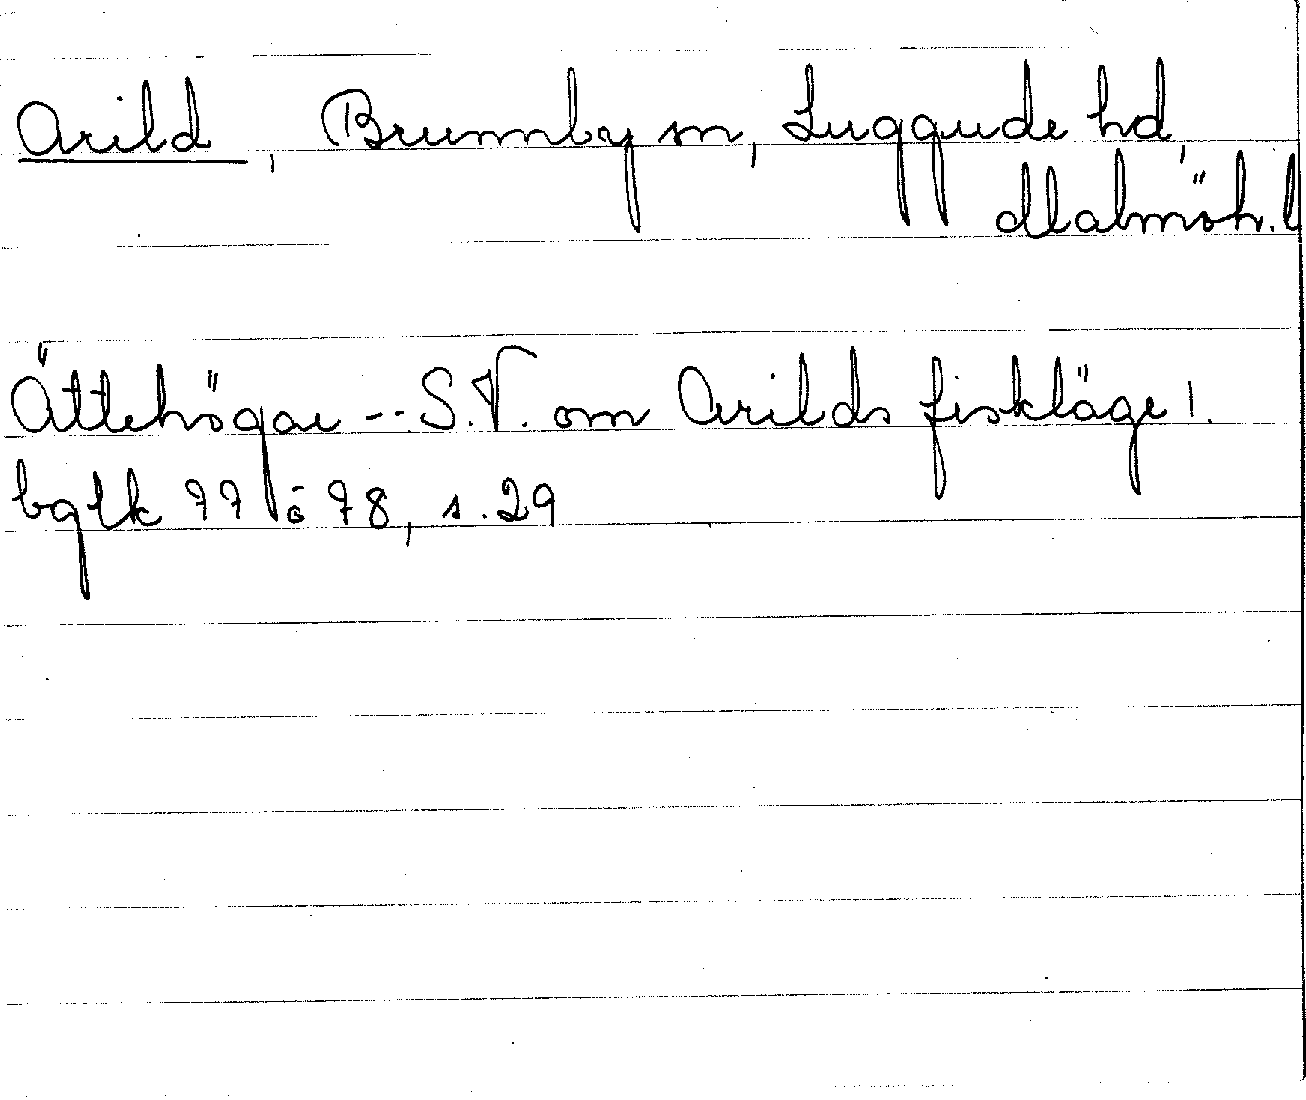 Arild, Brunnby sn, Luggude hd,
Malmöh. l
Ättehögar -- S.V. om Arilds fiskläge!.
bglk 77 o 78, s. 29